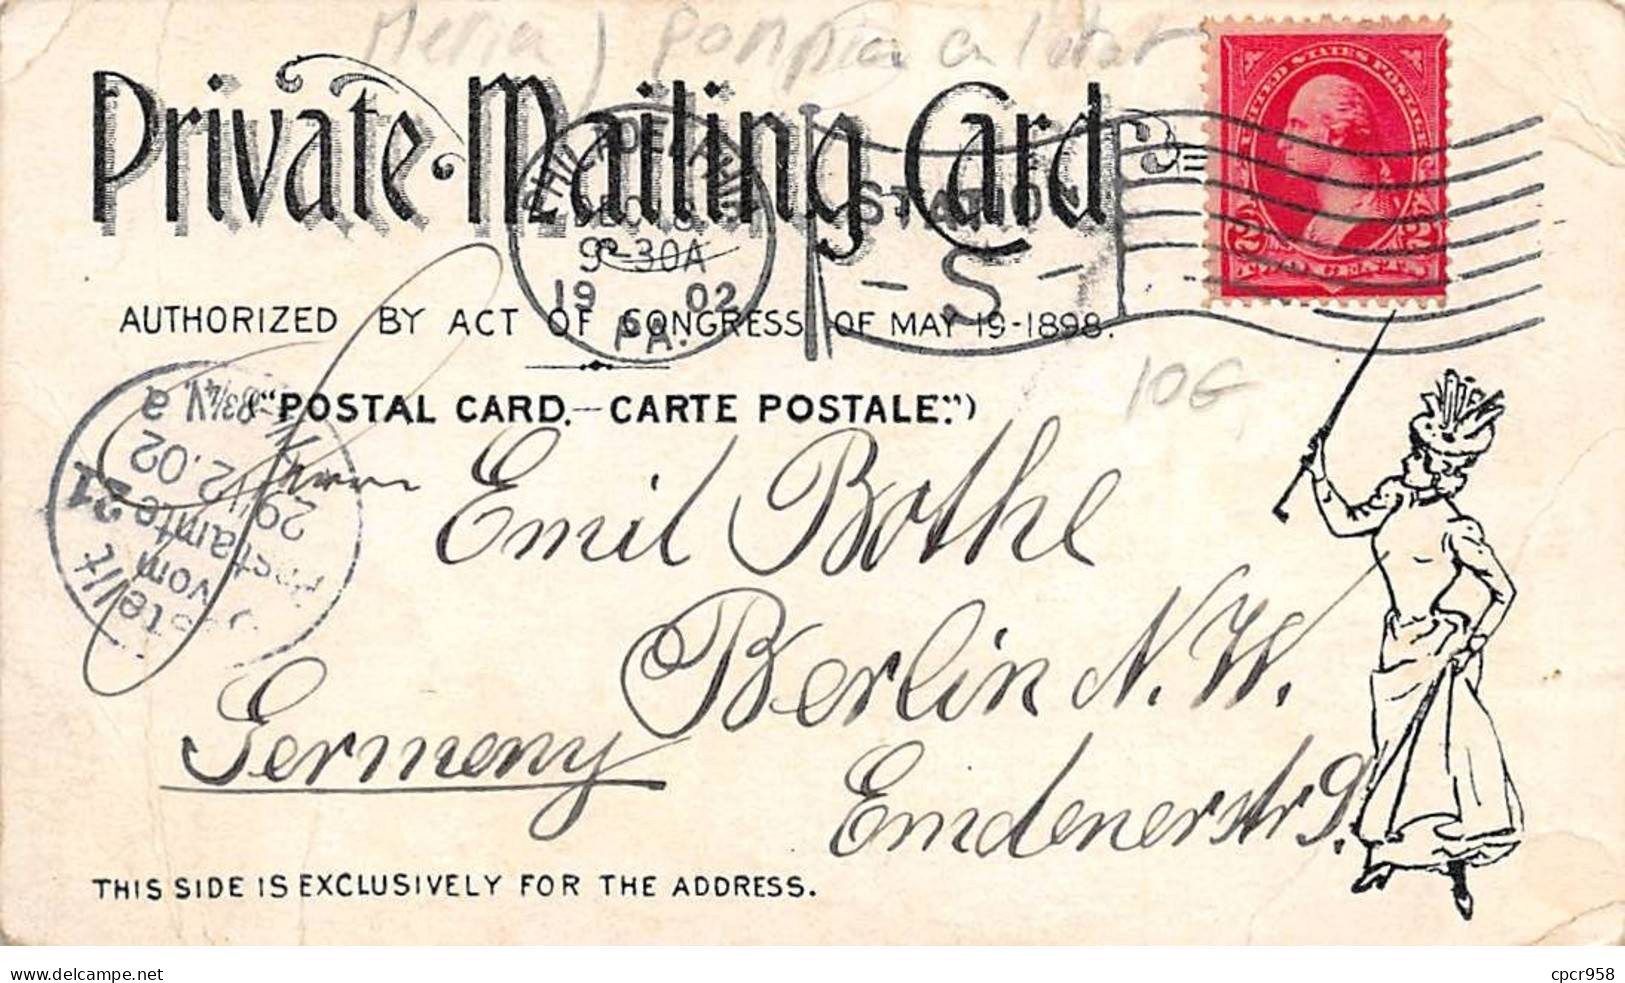 Private Mailing Card
UNITED STATES POSTAGE
PHILADELPHIA
9-30A
19 02
PA.
STATION
- S -
AUTHORIZED BY ACT OF CONGRESS OF MAY 19-1898.
("POSTAL CARD.—CARTE POSTALE".)
Bestellt
vom
Postamte 21
29.12.02
8-8¾V.
Herrn Emil Bothe
Berlin N.W.
Germany
Emdenerstr 9.
THIS SIDE IS EXCLUSIVELY FOR THE ADDRESS.
www.delcampe.net
cpcr958